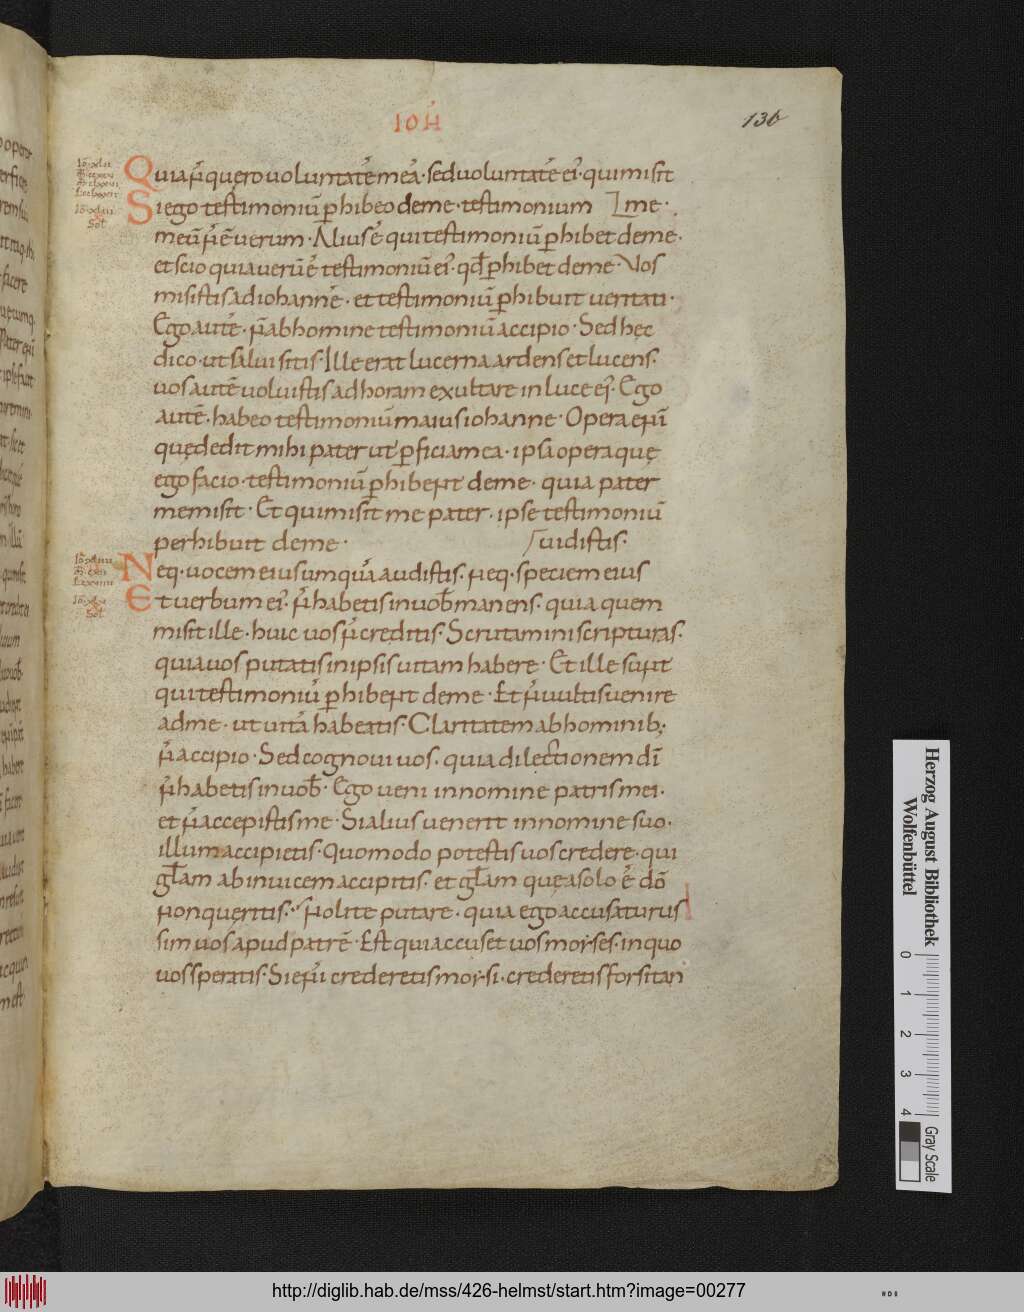 IOH̅
136
Quia n̅ quęro uoluntate̅ mea̅· sed uoluntate̅ ei᾽· qui misit
Si ego testimoniu̅ ꝑhibeo de me· testimonium me·
meu̅ n̅ e̅ uerum· Alius e̅ qui testimoniu̅ ꝑhibet de me·
et scio quia ueru̅ e̅ testimoniu̅ ei᾽· qd̅ ꝑhibet de me· Vos
misistis ad iohanne̅· et testimoniu̅ ꝑhibuit ueritati·
Ego aute̅· n̅ ab homine testimoniu̅ accipio· Sed hęc
dico· ut salui sitis· Ille erat lucerna ardens et lucens·
uos aute̅ uoluistis ad horam exultare in luce ei᾽· Ego
aute̅· habeo testimoniu̅ maius iohanne· Opera eni̅
quę dedit mihi pater ut ꝑficiam ea· ipsa opera quę
ego facio· testimoniu̅ ꝑhibent de me· quia pater
me misit· Et qui misit me pater· ipse testimoniu̅
perhibuit de me·
uidistis·
Neq· uocem eius umqua̅ audistis· neq· speciem eius
Et uerbum ei᾽· n̅ habetis in uob̅ manens· quia quem
misit ille· huic uos n̅ creditis· Scrutamini scripturas·
quia uos putatis in ipsis uitam habere· Et ille sunt
qui testimoniu̅ ꝑhibent de me· Et n̅ uultis uenire
ad me· ut uita̅ habeatis· Claritatem ab hominib;·
n̅ accipio· Sed cognoui uos· quia dilectionem di̅
n̅ habetis in uob̅· Ego ueni in nomine patris mei·
et n̅ accepistis me· Si alius uenerit in nomine suo·
illum accipietis· Quomodo potestis uos credere· qui
gl̅am ab inuicem accipitis· et gl̅am quę a solo e̅ do̅
non quęritis· Nolite putare· quia ego accusaturus
sim uos apud patre̅· Est qui accuset uos moyses· in quo
uos speratis· Si eni̅ crederetis moysi· crederetis forsitan
Herzog August Bibliothek
Wolfenbüttel
0 1 2 3 4
Gray Scale
http://diglib.hab.de/mss/426-helmst/start.htm?image=00277